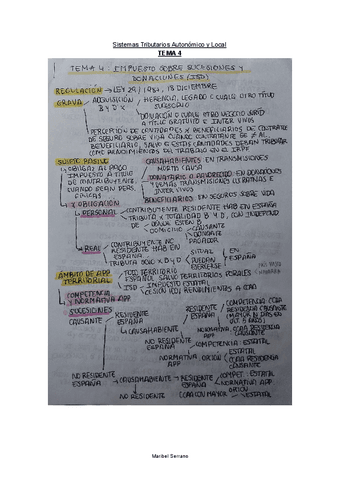 Sistemas Tributarios Autonómico y Local
TEMA 4
TEMA 4: IMPUESTO SOBRE SUCESIONES Y
DONACIONES (ISD)
REGULACIÓN → LEY 29/1987, 18 DICIEMBRE
GRAVA → ADQUISICIÓN B Y D X
HERENCIA, LEGADO O CUALQ OTRO TÍTULO
SUCESORIO
DONACIÓN O CUALQ OTRO NEGOCIO JURÍD
A TÍTULO GRATUITO E INTER VIVOS
PERCEPCIÓN DE CANTIDADES X BENEFICIARIOS DE CONTRATOS
DE SEGURO SOBRE VIDA CUANDO CONTRATANTE ≠ AL
BENEFICIARIO, SALVO Q ESTAS CANTIDADES DEBAN TRIBUTAR
COMO RENDIMIENTOS DEL TRABAJO EN EL IRPF
SUJETO PASIVO
OBLIGAD AL PAGO
IMPUESTO A TÍTULO
DE CONTRIBUYENTE,
CUANDO SEAN PERS.
FÍSICAS
CAUSAHABIENTES EN TRANSMISIONES
MORTIS CAUSA
DONATARIO O FAVORECIDO EN DONACIONES
Y DEMÁS TRANSMISIONES LUCRATIVAS E
INTER VIVOS
BENEFICIARIOS EN SEGUROS SOBRE VIDA
X OBLIGACIÓN
PERSONAL
CONTRIBUYENTE RESIDENTE HAB EN ESPAÑA
TRIBUTA X TOTALIDAD B Y D, CON INDEPEND
DE
DÓNDE ESTÉN B
DOMICILIO
CAUSANTE
DONANTE
PAGADOR
REAL
CONTRIBUYENTE NO
RESIDENTE HAB EN
ESPAÑA
TRIBUTA SOLO X B Y D
SITUAD
PUEDAN
EJERCERSE
EN
ESPAÑA
ÁMBITO DE APP
TERRITORIAL
TODO TERRITORIO
ESPAÑOL SALVO TERRITORIOS FORALES
NAVARRA
ISD
IMPUESTO ESTATAL
CESIÓN RENDIMIENTOS A CCAA
COMPETENCIA
Y NORMATIVA APP
SUCESIONES
CAUSANTE
RESIDENTE
ESPAÑA
CAUSAHABIENTE
RESIDENTE
ESPAÑA
COMPETENCIA CCAA
RESIDENCIA CAUSANTE
NORMATIVA CCAA RESIDENCIA
CAUSANTE
NO RESIDENTE
ESPAÑA
COMPETENCIA: ESTATAL
NORMATIVA OPCIÓN
ESTATAL
CCAA RESIDENCIA
CAUSANTE
NO RESIDENTE
ESPAÑA
CAUSAHABIENTE
RESIDENTE
ESPAÑA
COMPET: ESTATAL
NORMATIVA APP
OPCIÓN
NO RESIDENTE
CCAA CON MAYOR
ESTATAL
Maribel Serrano